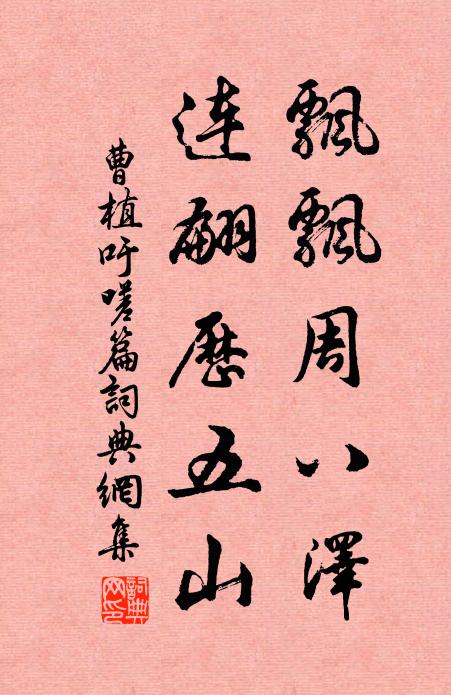 飄飄周八澤
連翩歷五山
曹植吁嗟篇詞典網集
詞典
网印